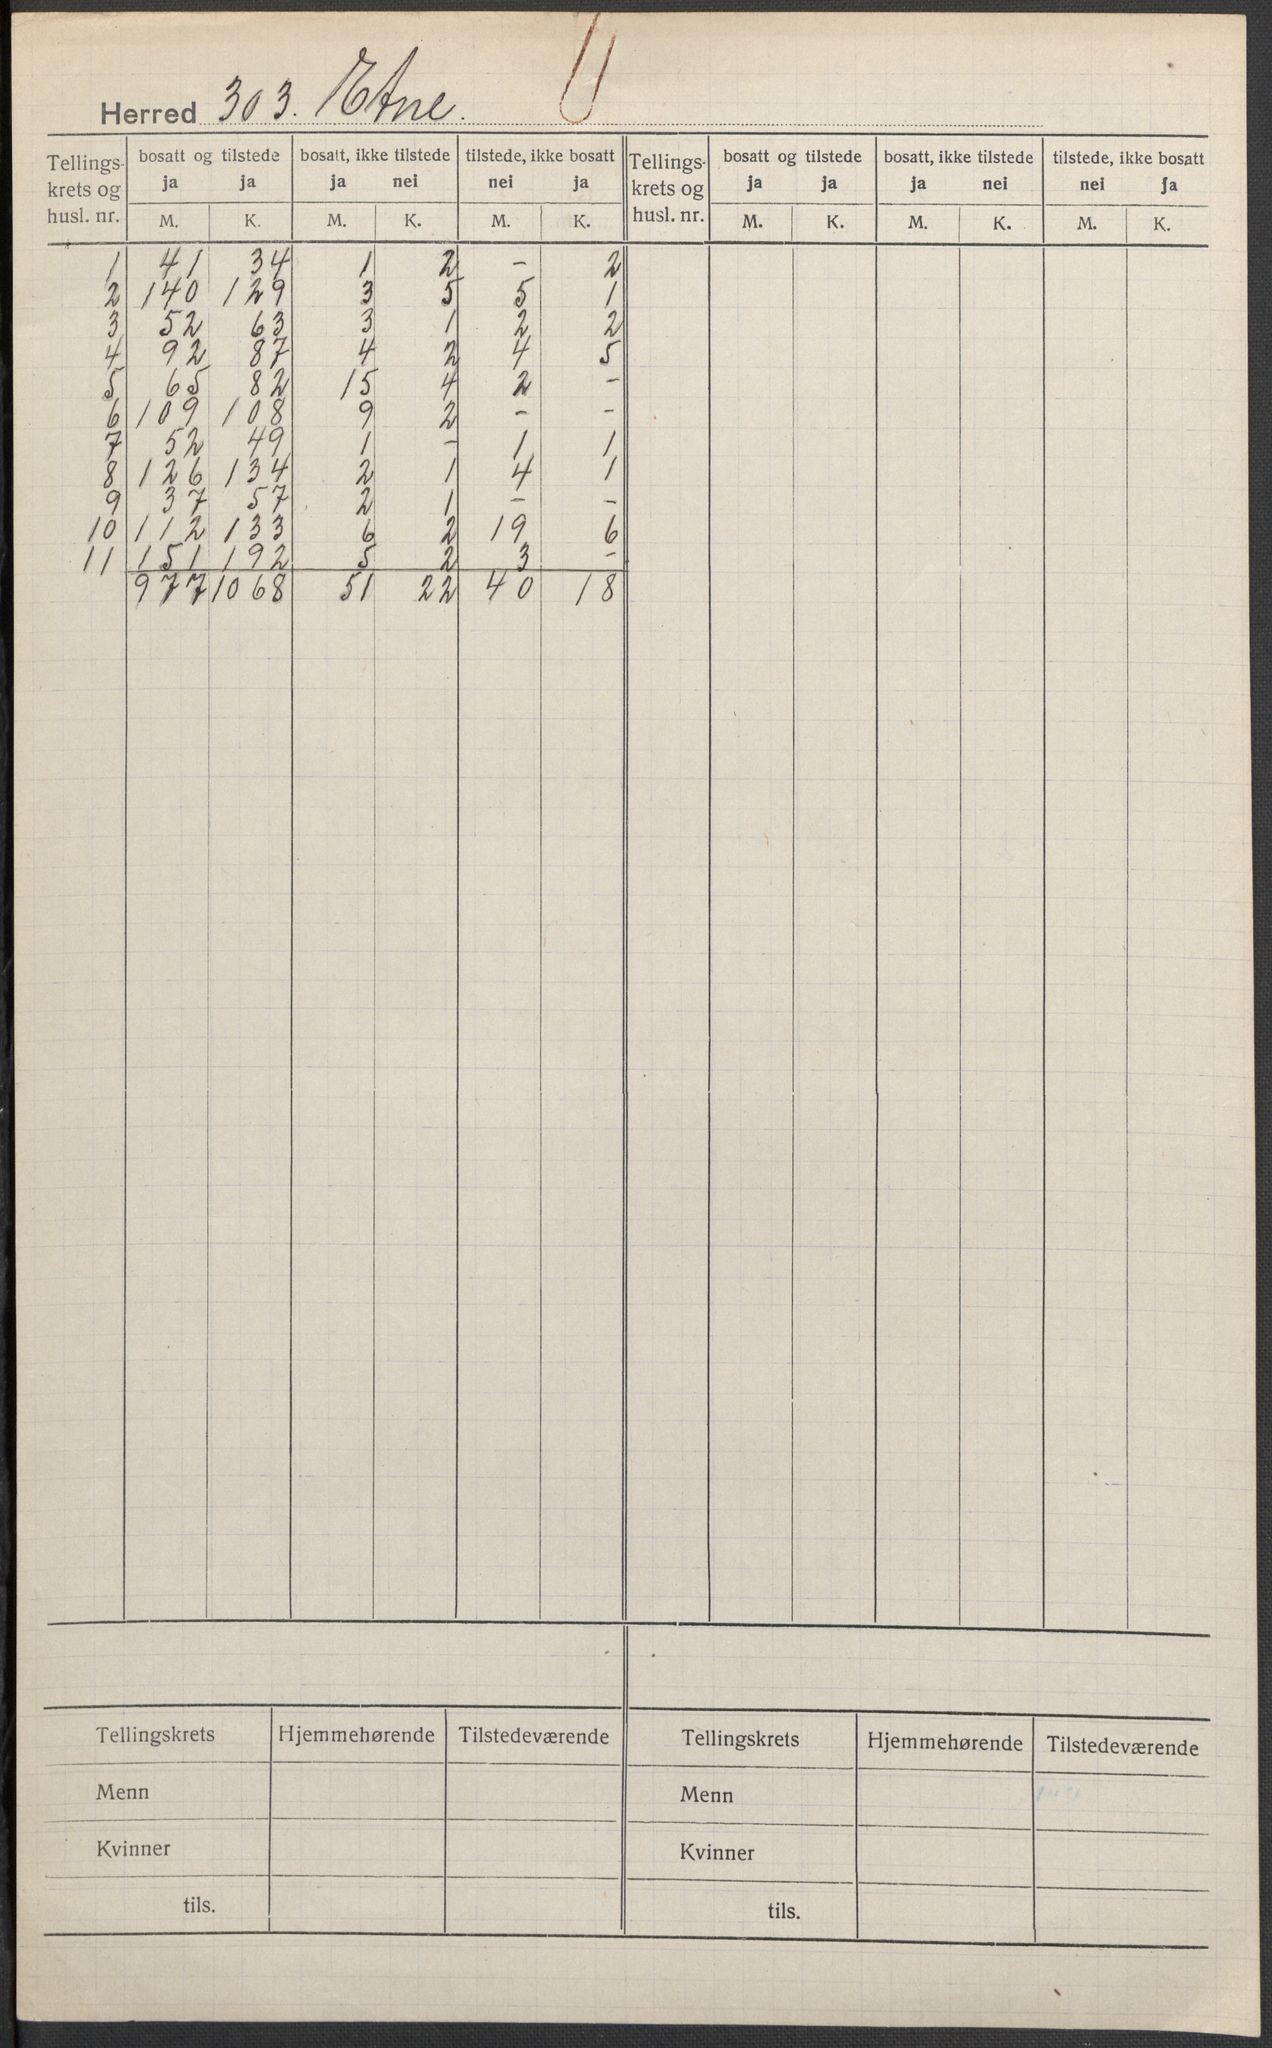 Herred 303. Etne.
Tellings- krets og husl. nr. bosatt og tilstede bosatt, ikke tilstede tilstede, ikke bosatt Tellings- krets og husl. nr. bosatt og tilstede bosatt, ikke tilstede tilstede, ikke bosatt
ja ja ja nei nei ja ja ja ja nei nei ja
M. K. M. K. M. K. M. K. M. K. M. K.
1 41 34 1 2 - 2
2 140 129 3 5 5 1
3 52 63 3 1 2 2
4 92 87 4 2 4 5
5 65 82 15 4 2 -
6 109 108 9 2 - -
7 52 49 1 - 1 1
8 126 134 2 1 4 1
9 37 57 2 1 - -
10 112 133 6 2 19 6
11 151 192 5 2 3 -
977 1068 51 22 40 18
Tellingskrets Hjemmehørende Tilstedeværende Tellingskrets Hjemmehørende Tilstedeværende
Menn Menn
Kvinner Kvinner
tils. tils.